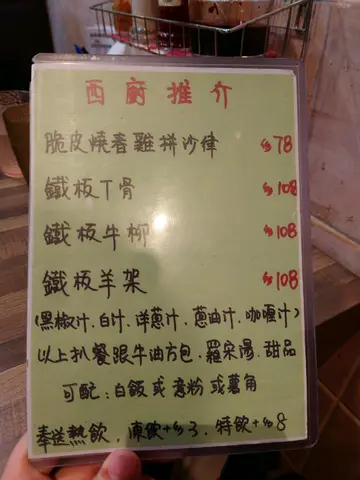 西廚推介
脆皮燒春雞拼沙律 $78
鐵板T骨 $108
鐵板牛柳 $108
鐵板羊架 $108
(黑椒汁.白汁.洋蔥汁.蔥油汁.咖喱汁)
以上扒餐跟牛油方包.羅宋湯.甜品
可配:白飯或意粉或薯角
奉送熱飲,凍飲+$3.特飲+$8